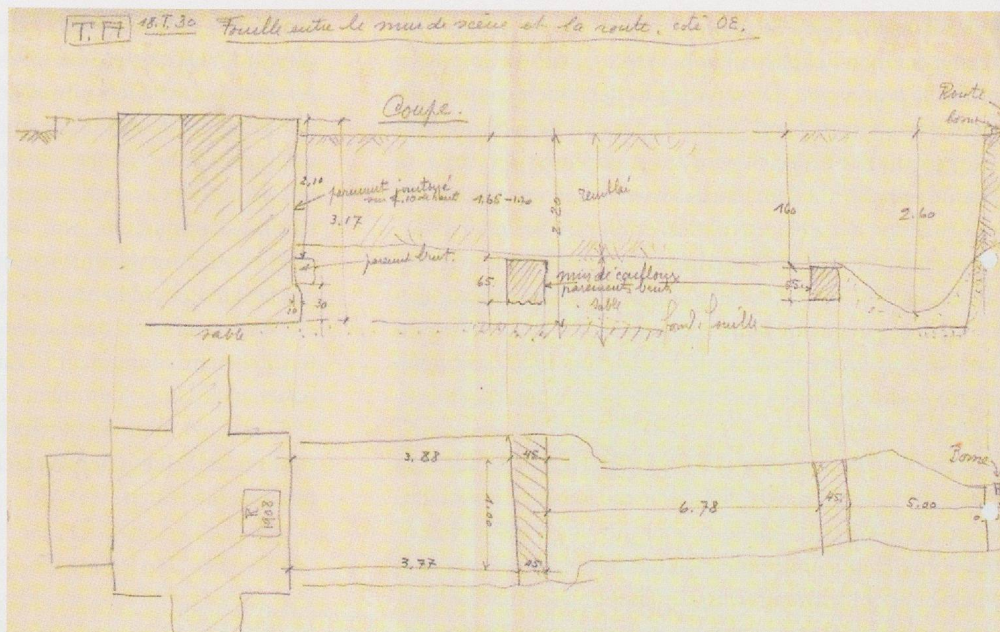 T. A 18.I.30 Fouille entre le mur de scène et la route. côté OE.
Coupe.
Route
borne
2,10
parement jointoyé
3.17
1.65-1.70
2.20
remblai
160
2.60
parement brut.
65
mur de cailloux
parements bruts
sable
55
30
10
sable
fond fouille
3.88
45
Borne
R
1908
1.00
6.78
45
5.00
3.77
45